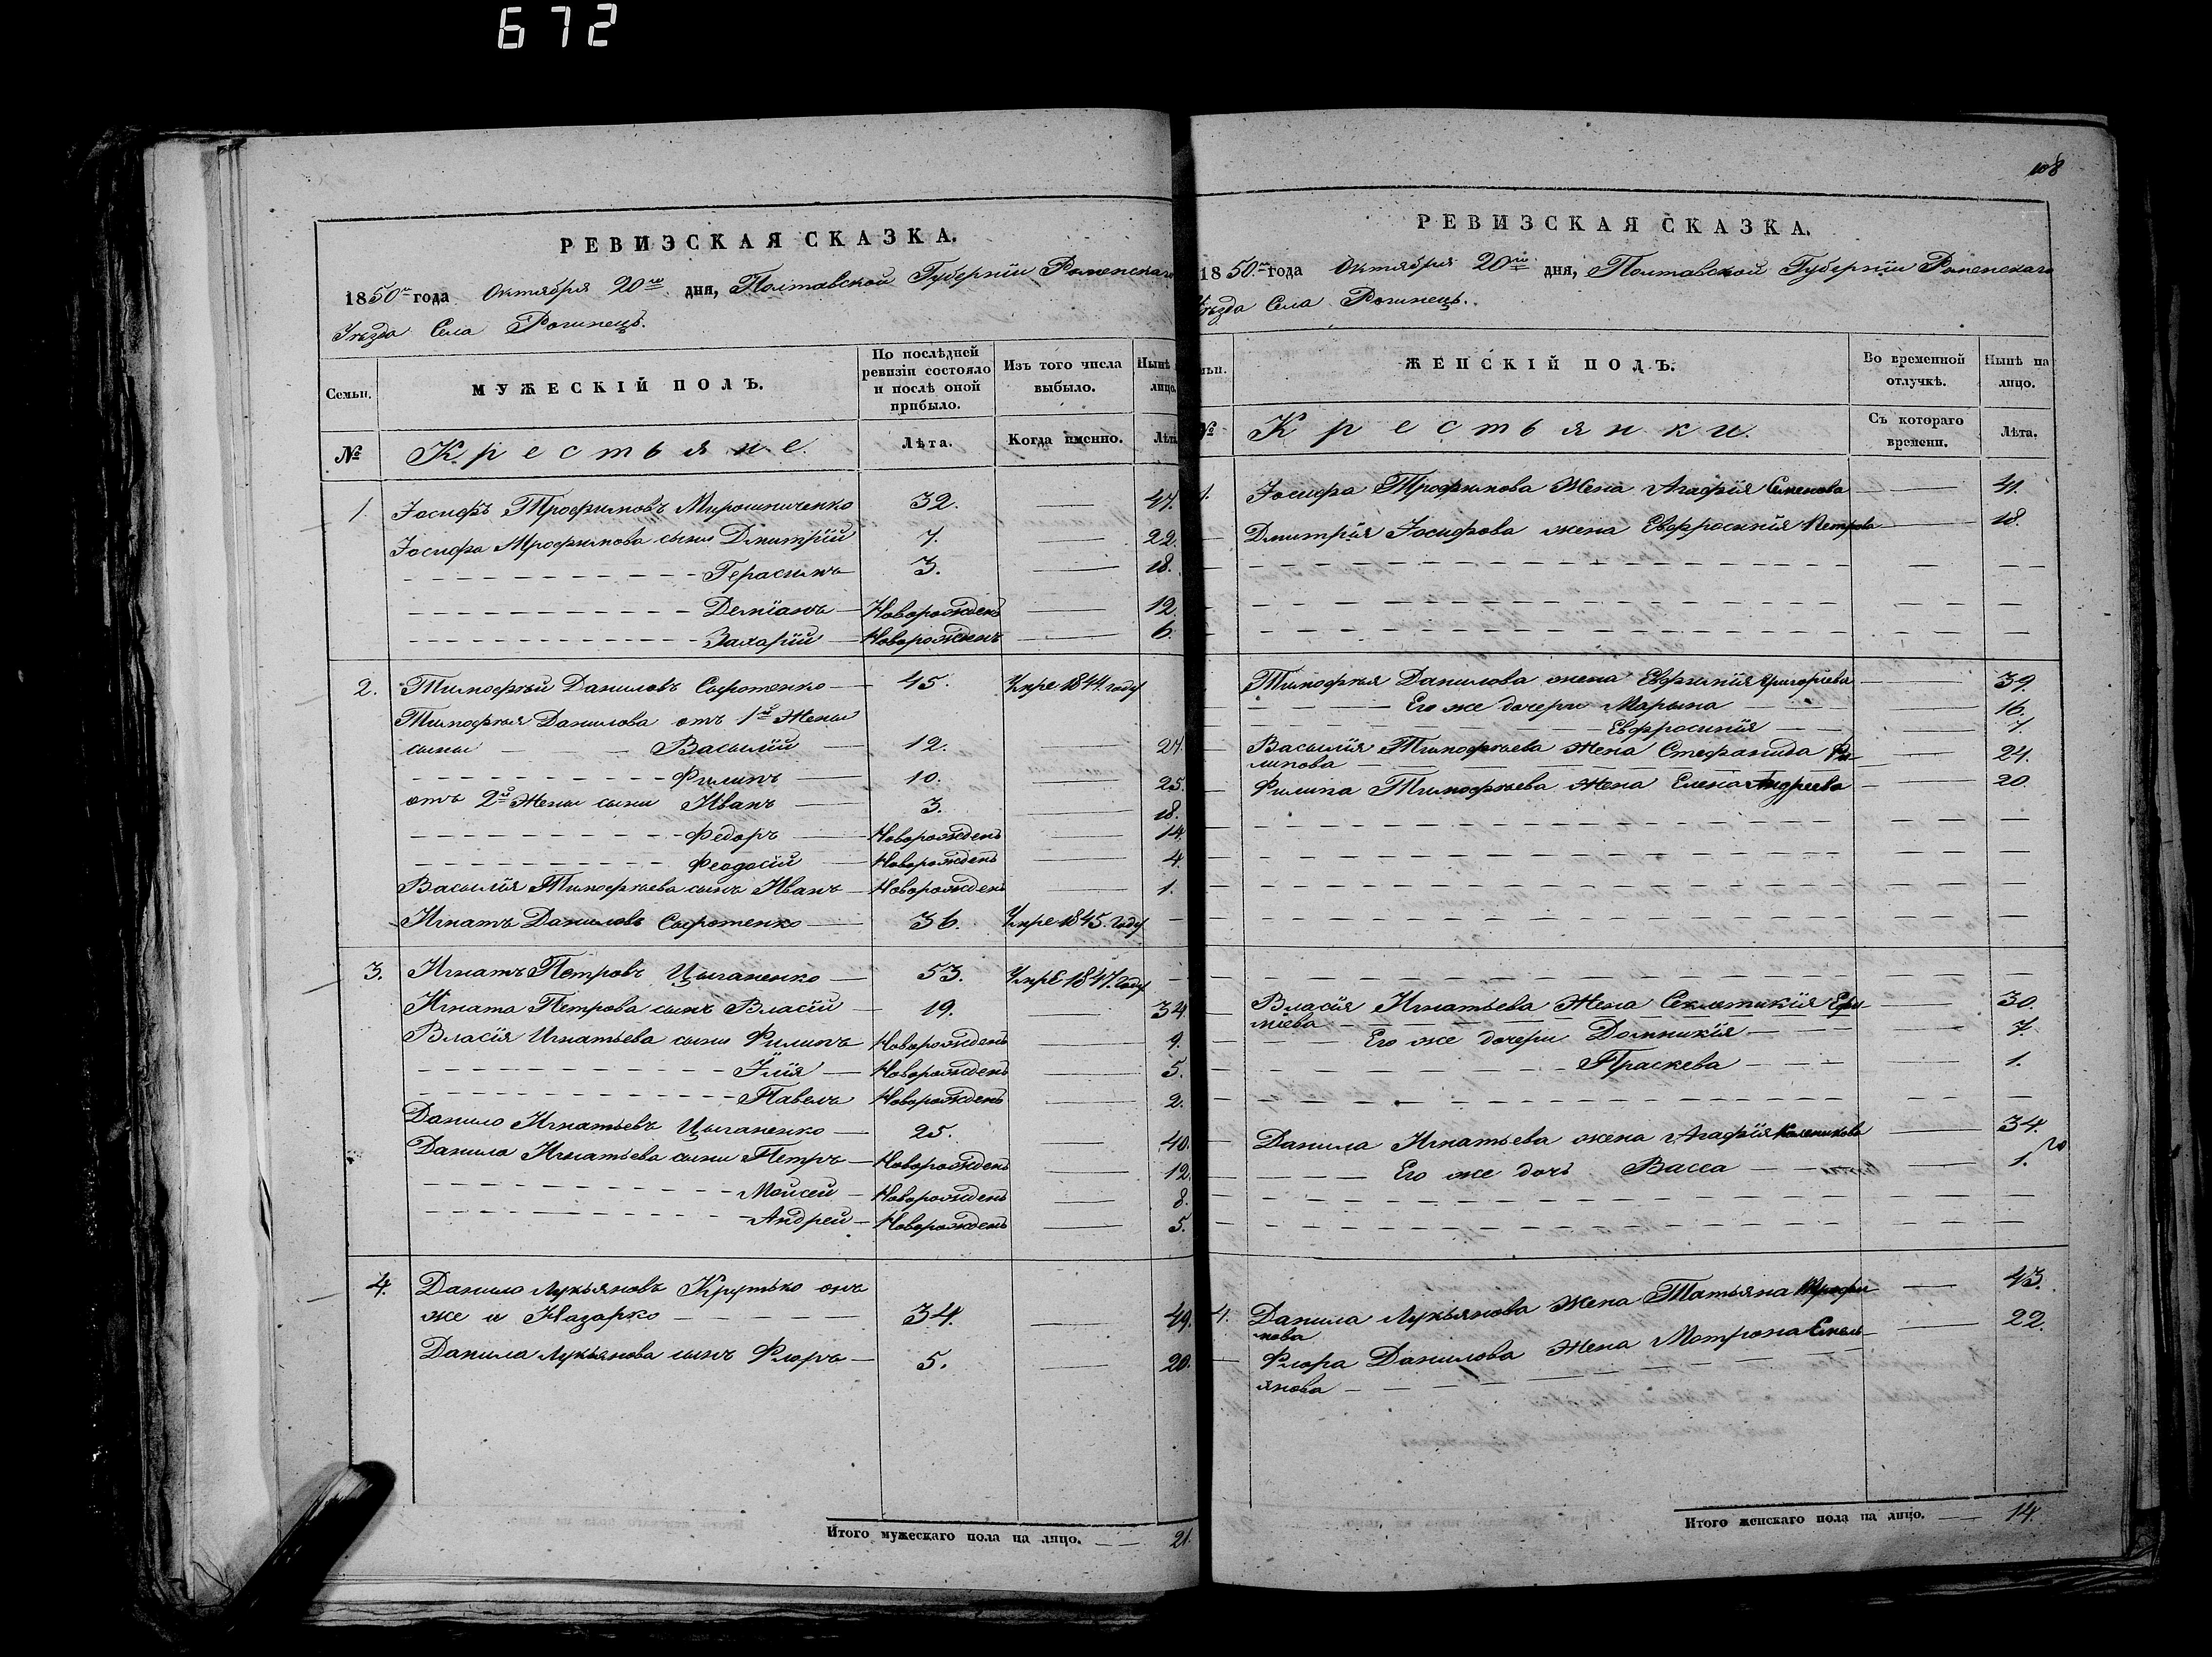 672
РЕВИЗСКАЯ СКАЗКА.
1850го года Октября 20го дня, Полтавской Губерніи Роменскаго
Уѣзда Села Рогинець.
Семьи.
МУЖЕСКІЙ ПОЛЪ.
По послѣдней ревизіи состояло и послѣ оной прибыло.
Изъ того числа выбыло.
Нынѣ лицо.
№
Крестьяне.
Лѣта.
Когда именно.
Лѣта
1. Іосифъ Трофимовъ Мирошниченко 32. — 47.
Іосифа Трофимова сыны Дмитрій 7. — 22.
Герасимъ 3. — 18.
Деміанъ — Новорожденъ — 12.
Захарій — Новорожденъ — 6.
2. Тимофѣй Даниловъ Сыротенко — 45. Умре 1844. году
Тимофѣя Данилова отъ 1й Жены
сыны — Василій — 12. 27.
Филипъ — 10. — 25.
отъ 2й Жены сыны Иванъ — 3. — 18.
Федоръ — Новорожденъ — 14.
Феодосій — Новорожденъ — 4.
Василія Тимофѣева сынъ Иванъ — Новорожденъ — 1.
Игнатъ Даниловъ Сыротенко — 36. Умре 1845. году —
3. Игнатъ Петровъ Цыганенко — 53. Умре 1847. году —
Игната Петрова сынъ Власій — 19. — 34.
Власія Игнатьева сыны Филипъ Новорожденъ — 9.
Илія — Новорожденъ — 5.
Павелъ Новорожденъ — 2.
Данило Игнатьевъ Цыганенко — 25. — 40.
Данила Игнатьева сыны Петръ — Новорожденъ — 12.
Моисей — Новорожденъ — 8.
Андрей — Новорожденъ — 5.
4. Данило Лукьяновъ Крутько онъ
же и Назарко — 34. — 49.
Данила Лукьянова сынъ Флоръ — 5. — 20.
Итого мужескаго пола на лицо. — 21.
108
РЕВИЗСКАЯ СКАЗКА.
1850го года Октября 20го дня, Полтавской Губерніи Роменскаго
Уѣзда Села Рогинець.
ЖЕНСКІЙ ПОЛЪ.
Во временной отлучкѣ.
Нынѣ на лицо.
№
Крестьянки.
Съ котораго времени.
Лѣта.
1. Іосифа Трофимова Жена Агафія Семенова — 41.
Дмитрія Іосифова жена Евфросинія Петрова — 18.
Тимофѣя Данилова жена Евфимія Григоріева — 39.
Его же дочери Марына — 16.
Евфросинія — 7.
Василія Тимофѣева Жена Стефанида Фи- — 24.
липова
Филипа Тимофѣева Жена Елена Андреева — 20.
Власія Игнатьева Жена Секлитикія Ефи- — 30
міева
Его же дочери Домникія — 7.
Праскева — 1.
Данила Игнатьева жена Агафія — 34.
Его же дочь Васса — 1.
4. Данила Лукьянова Жена Татьяна Трофи — 43.
мова
Флора Данилова Жена Мотрона Емель- — 22.
янова
Итого женскаго пола на лицо. — 14.